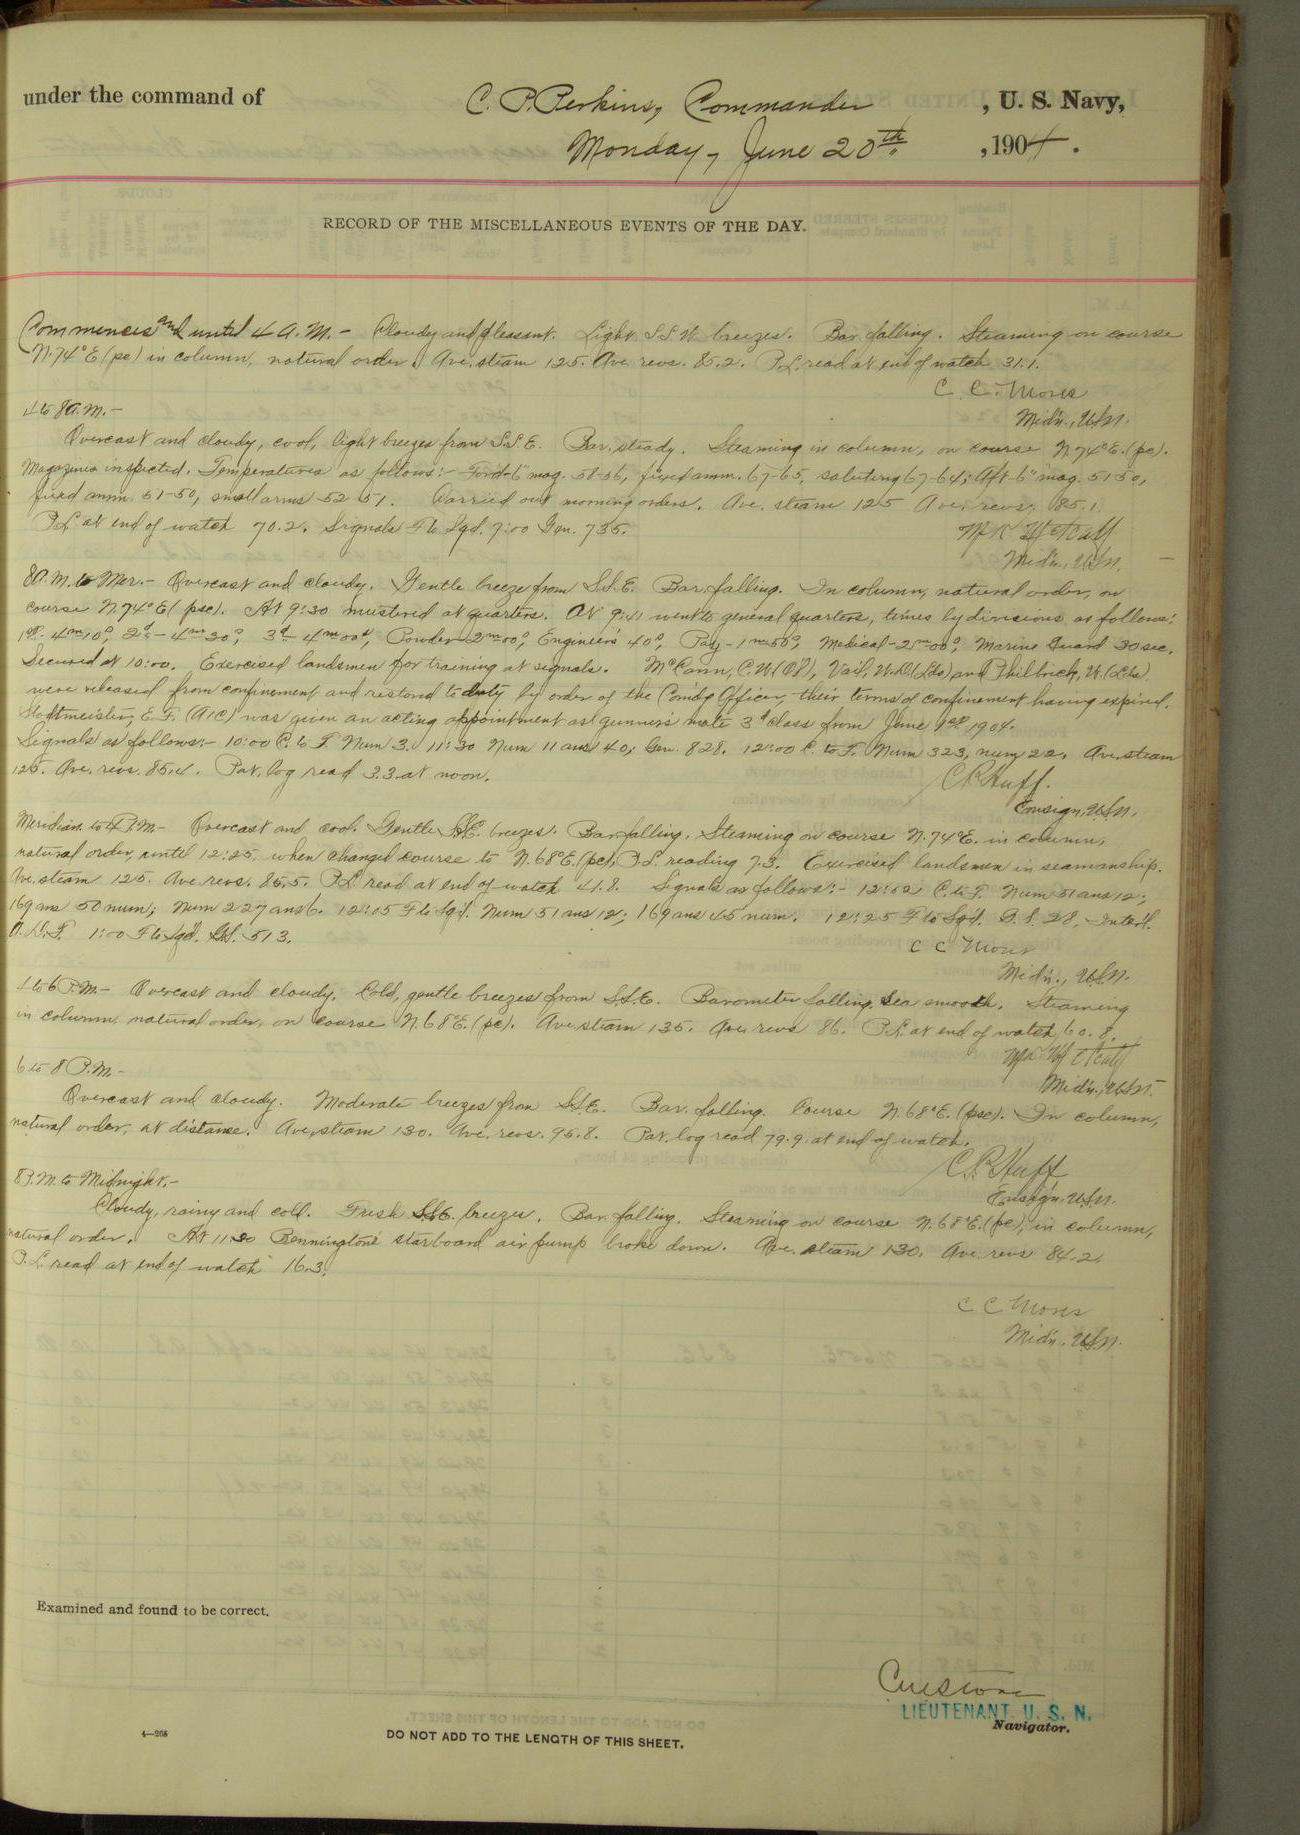 under the command of C. P. Perkins, Commander , U. S. Navy,
Monday, June 20th , 1904.
RECORD OF THE MISCELLANEOUS EVENTS OF THE DAY.
Commences and until 4 A.M. - Cloudy and pleasant. Light S.S.W. breezes. Bar. falling. Steaming on course
N.74°E (psc) in column, natural order. Ave. steam 125. Ave. revs. 85.2. P.L. read at end of watch 31.1.
C. C. Moses
Mid'n., U.S.N.
4 to 8 A.M. -
Overcast and cloudy, cool, light breezes from S.S.E. Bar. steady. Steaming in column, on course N.74°E. (psc).
Magazines inspected. Temperatures as follows:- Ford-6" mag. 58-56, fixed amm. 67-65, saluting 67-64; Aft-6" mag. 51-50,
fixed amm. 51-50, small arms 52-51. Carried out morning orders. Ave. steam 125 Ave. revs. 85.1.
P.L. at end of watch 70.2. Signals F to Sqd. 7:00 Gen. 735.
Mid'n., U.S.N.
8 A.M. to Mer. - Overcast and cloudy. Gentle breeze from S.S.E. Bar. falling. In column, natural order, on
course N.74°E (psc). At 9:30 mustered at quarters. At 9:41 went to general quarters, times by divisions as follows:
1st - 4m 10s, 2d - 4m 20s, 3d - 4m 00s, Powder - 2m 00s, Engineers 40s, Pay - 1m 50s, Medical - 2m 00s, Marine Guard 30 sec.
Secured at 10:00. Exercised landsmen for training at signals. McCann, C.W. Vail, W.D. (Lds) and Philbrick, W. (Lds)
were released from confinement and restored to duty by order of the Comdg Officer, their terms of confinement having expired.
Hoffmeister, E. F. (A1C) was given an acting appointment as gunners mate 3d class from June 1st 1904.
Signals as follows:- 10:00 C. to F. Num 3. 11:30 Num 11 ans 40; Gen. 828. 12:00 C. to F. Num 323, num 22. Ave. steam
125. Ave. revs. 85.4. Pat. log read 3.3 at noon.
C R Huff.
Ensign, U.S.N.
Meridian to 4 P.M. - Overcast and cool. Gentle S.S.E. breezes. Bar. falling. Steaming on course N.74°E. in column,
natural order, until 12:25, when changed course to N.68°E. (psc), P.L. reading 7.3. Exercised landsmen in seamanship.
Ave. steam 125. Ave. revs. 85.5. P.L. read at end of watch 41.8. Signals as follows:- 12:02 C. to F. Num 51 ans 12;
169 ans 50 num; Num 227 ans 6. 12:05 F to Sqd. Num 51 ans 12; 169 ans 45 num. 12:25 F to Sqd. G.S. 28, Inter'l.
1:00 F to Sqd. G.S. 513.
C C Moses
Mid'n., U.S.N.
4 to 6 P.M. - Overcast and cloudy. Cold, gentle breezes from S.S.E. Barometer falling, Sea smooth. Steaming
in column, natural order, on course N.68°E. (psc). Ave. steam 135. Ave. revs 86. P.L. at end of watch 60.8.
Mid'n., U.S.N.
6 to 8 P.M. -
Overcast and cloudy. Moderate breezes from S.S.E. Bar. falling. Course N.68°E. (psc). In column,
natural order, at distance. Ave. steam 130. Ave. revs. 95.8. Pat. log read 79.9 at end of watch.
C. R. Huff
Ensign, U.S.N.
8 P.M. to Midnight. -
Cloudy, rainy and cold. Fresh S.S.E. breezes. Bar. falling. Steaming on course N.68°E. (psc), in column,
natural order. At 11:30 Bennington's starboard air pump broke down. Ave. steam 130. Ave. revs 84.2.
P.L. read at end of watch 16.3.
C C Moses
Mid'n., U.S.N.
Examined and found to be correct.
LIEUTENANT, U. S. N.
Navigator.
4—265
DO NOT ADD TO THE LENGTH OF THIS SHEET.